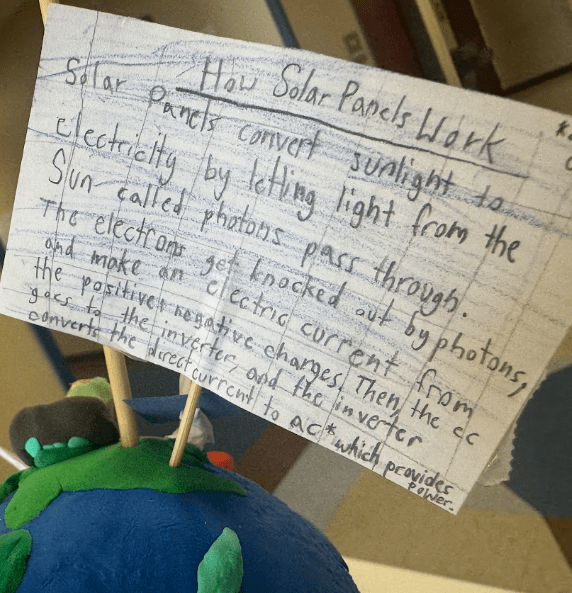 How Solar Panels Work
Solar panels convert sunlight to
electricity by letting light from the
Sun called photons pass through.
The electrons get knocked out by photons,
and make an electric current from
the positive, negative charges. Then, the cc
goes to the inverter, and the inverter
converts the direct current to ac* which provides
power.